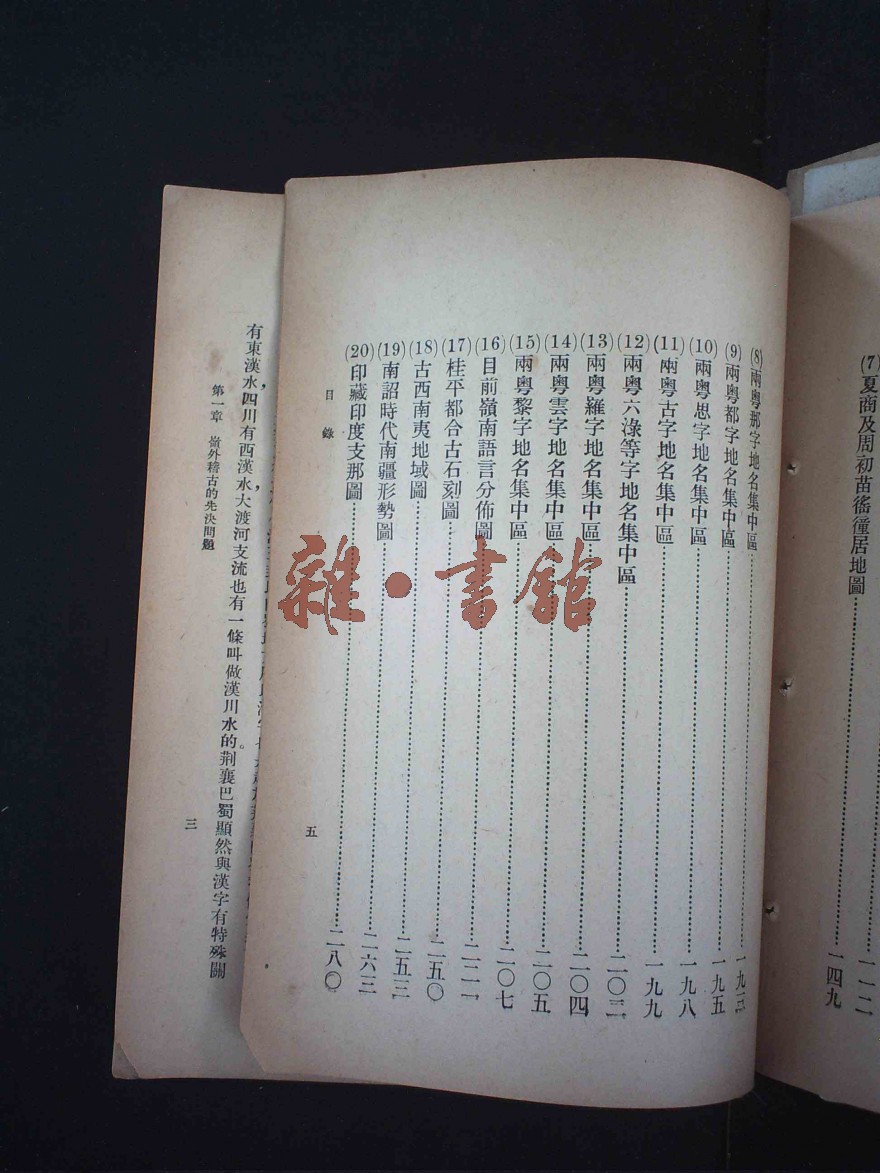 一一二
(7)夏商及周初苗徭獞居地圖……一四九
(8)兩粤那字地名集中區……一九三
(9)兩粤都字地名集中區……一九五
(10)兩粤思字地名集中區……一九八
(11)兩粤古字地名集中區……一九九
(12)兩粤六淥等字地名集中區……二〇二
(13)兩粤羅字地名集中區……二〇四
(14)兩粤雲字地名集中區……二〇五
(15)兩粤黎字地名集中區……二〇七
(16)目前嶺南語言分佈圖……二二一
(17)桂平都合古石刻圖……二五〇
(18)古西南夷地域圖……二五三
(19)南詔時代南疆形勢圖……二六三
(20)印藏印度支那圖……二八〇
目錄
五
有東漢水，四川有西漢水，大渡河支流也有一條叫做漢川水的。荆襄巴蜀顯然與漢字有特殊關
第一章 嶺外稽古的先決問題
三
雜·書館